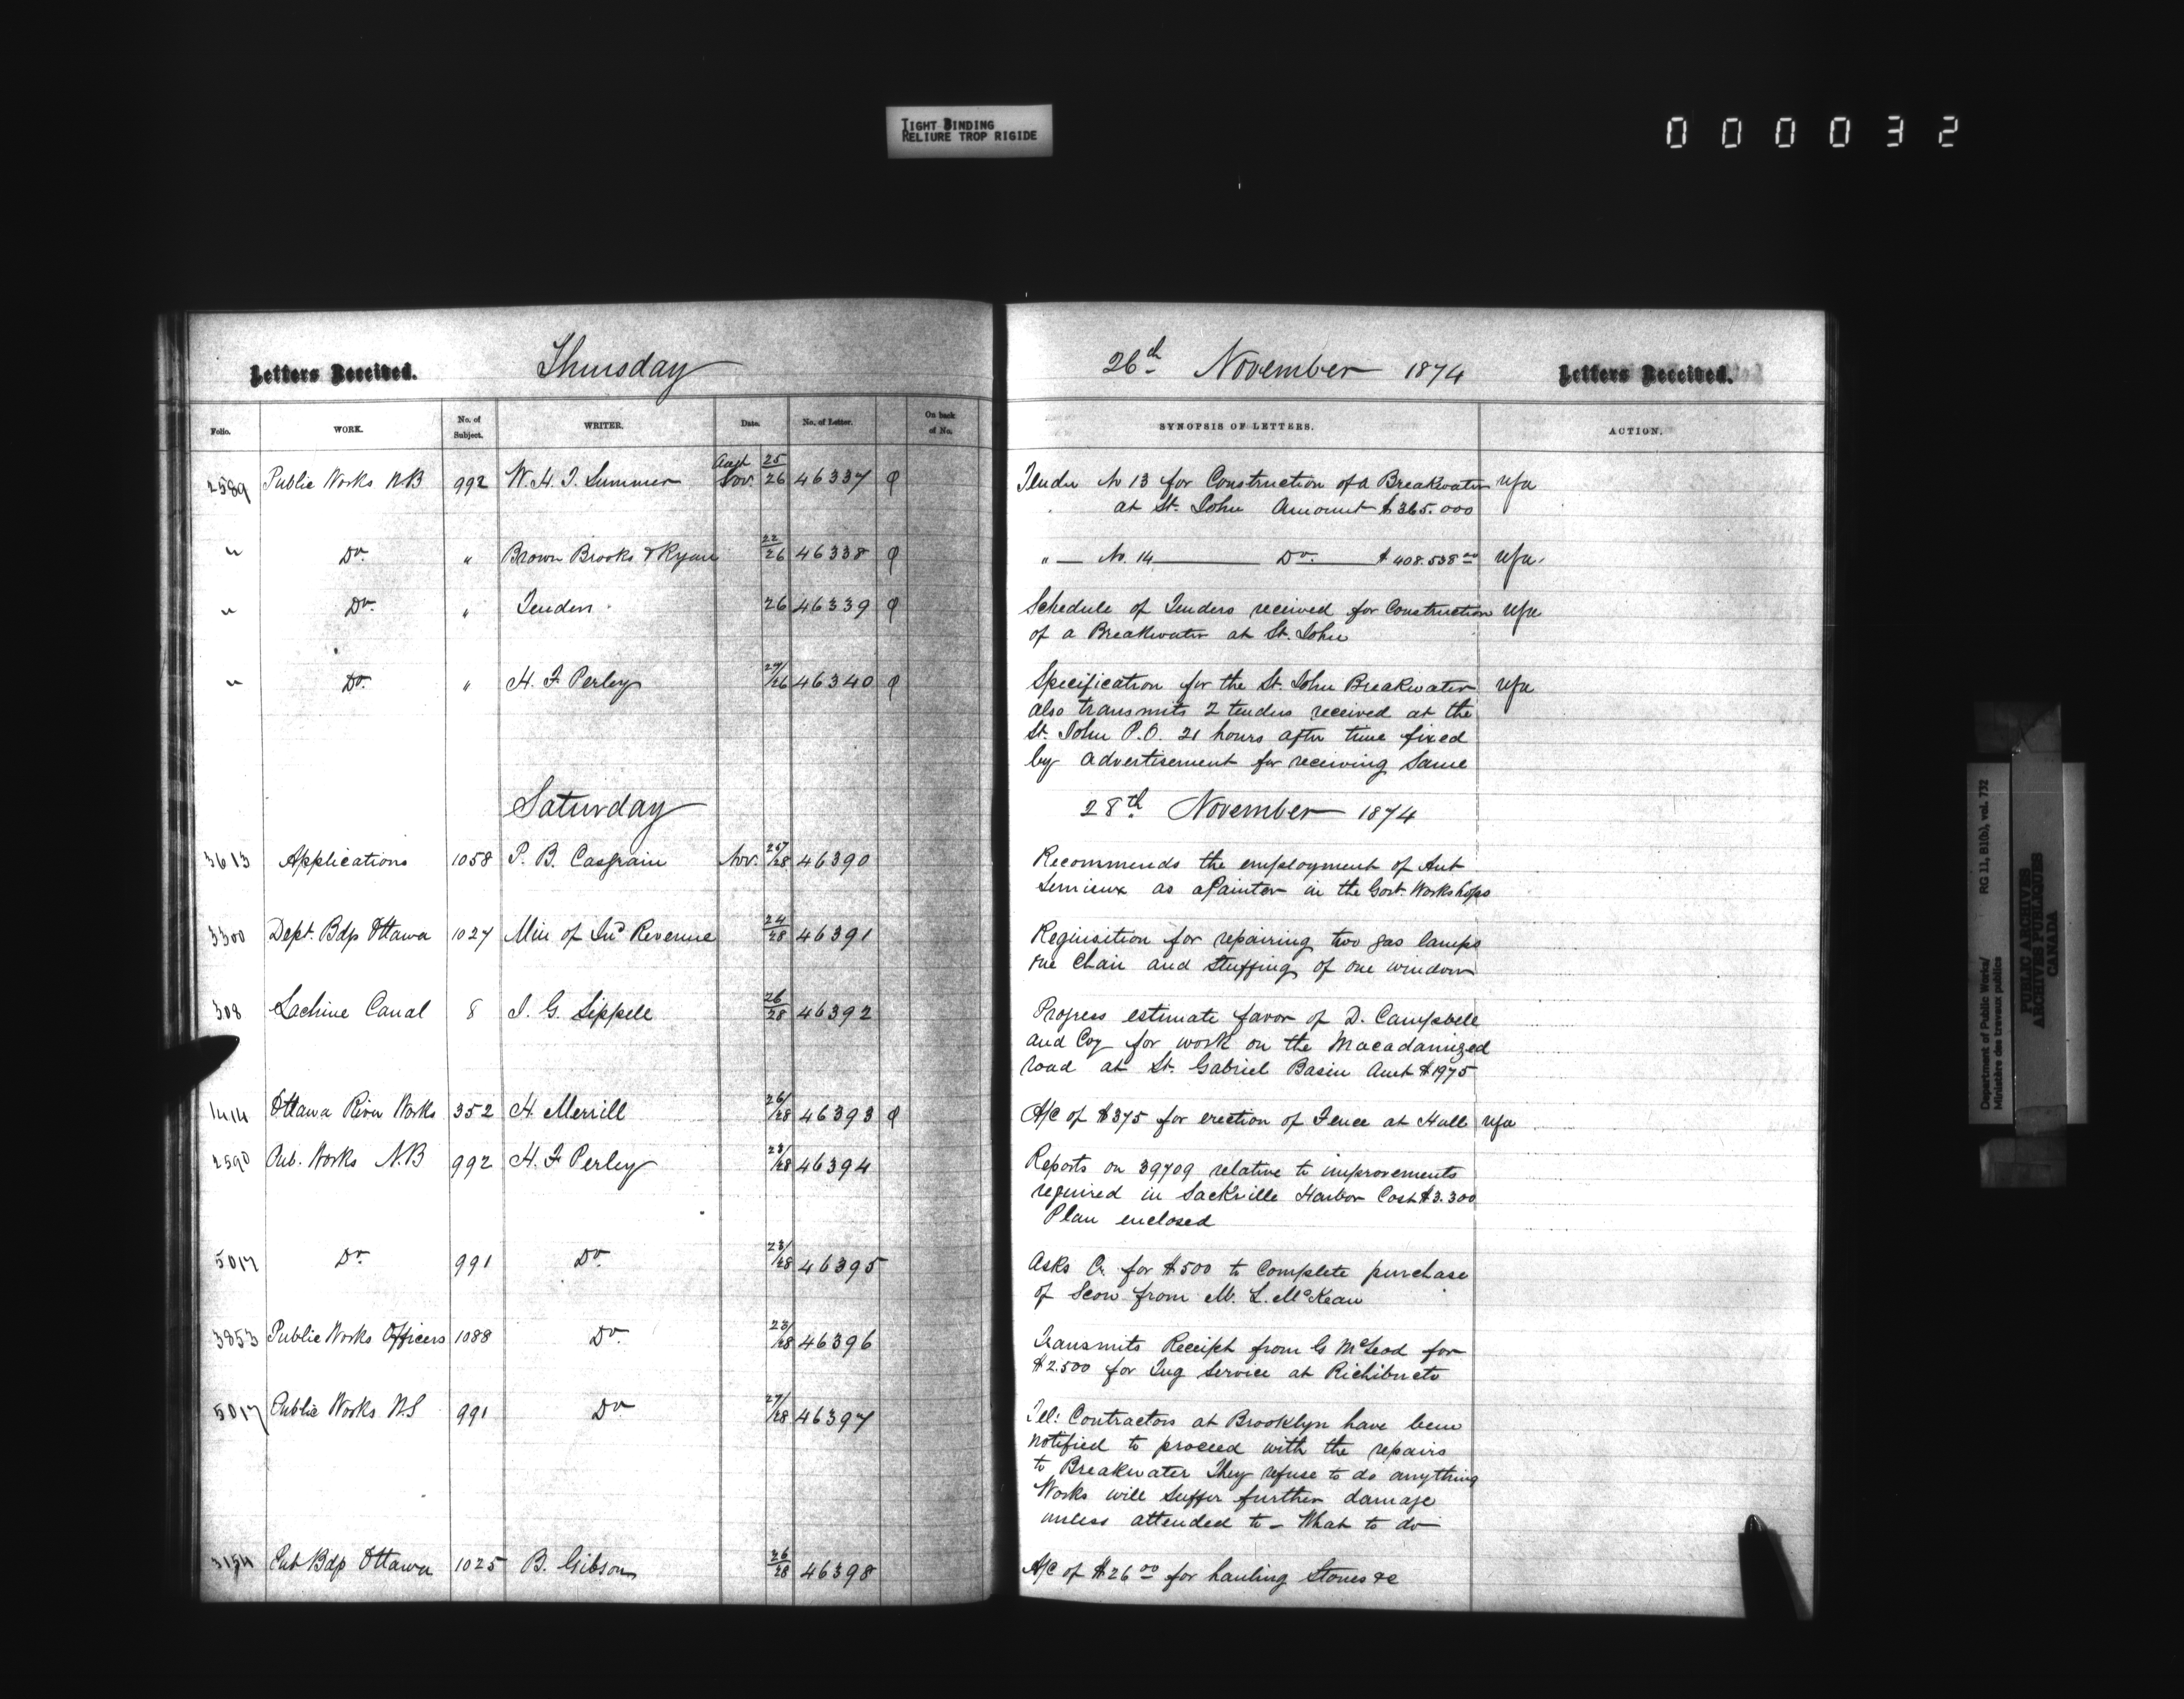 TIGHT BINDING
RELIURE TROP RIGIDE
000032
Letters Received. Thursday 26th November 1874 Letters Received.
Folio. WORK. No. of Subject. WRITER. Date. No. of Letter. On back of No. SYNOPSIS OF LETTERS. ACTION.
2589 Public Works N.B 992 W. H. T. Sumner Nov. 25/26 46337 Tender No 13 for Construction of a Breakwater
at St. John Amount $365.000
" Do. " Brown Brooks & Ryan 22/26 46338 " — No. 14 — Do. — $408.538 00
" Do. " Tenders 26 46339 Schedule of Tenders received for Construction
of a Breakwater at St. John
" Do. " H. F Perley 26 46340 Specification for the St. John Breakwater
also transmits 2 tenders received at the
St. John P.O. 21 hours after time fixed
by advertisement for receiving Same
Saturday 28th November 1874
3613 Applications 1058 P. B. Casgrain Nov. 25/28 46390 Recommends the employment of Ant
Lemieux as a Painter in the Govt. Workshops
3300 Dept. Bdp Ottawa 1027 Min of Ind Revenue 24/28 46391 Requisition for repairing two gas lamps
one Chair and Stuffing of one window
308 Lachine Canal 8 J. G. Sippell 26/28 46392 Progress estimate favor of D. Campbell
and Coy for work on the Macadamized
road at St. Gabriel Basin Amt $1975
1414 Ottawa River Works 352 H. Merrill 26/28 46393 A/C of $375 for erection of Fence at Hull
2590 Pub. Works N.B 992 H. F Perley 23/28 46394 Reports on 39709 relative to improvements
required in Sackville Harbor Cost $3.300
Plan enclosed
5017 Do. 991 Do 23/28 46395 Asks Cr. for $500 to Complete purchase
of Scow from M. L. McKean
3853 Public Works Officers 1088 Do. 23/28 46396 Transmits Receipt from G McLeod for
$2.500 for Tug Service at Richibucto
5017 Public Works N.S 991 Do 27/28 46397 Tel: Contractors at Brooklyn have been
notified to proceed with the repairs
to Breakwater They refuse to do anything
Works will suffer further damage
unless attended to — What to do
3154 Pub Bdp Ottawa 1025 B. Gibson 26/28 46398 A/C of $26 00 for hauling Stones &c
Department of Public Works/ RG 11, B1(b), vol. 732
Ministère des travaux publics
PUBLIC ARCHIVES
ARCHIVES PUBLIQUES
CANADA